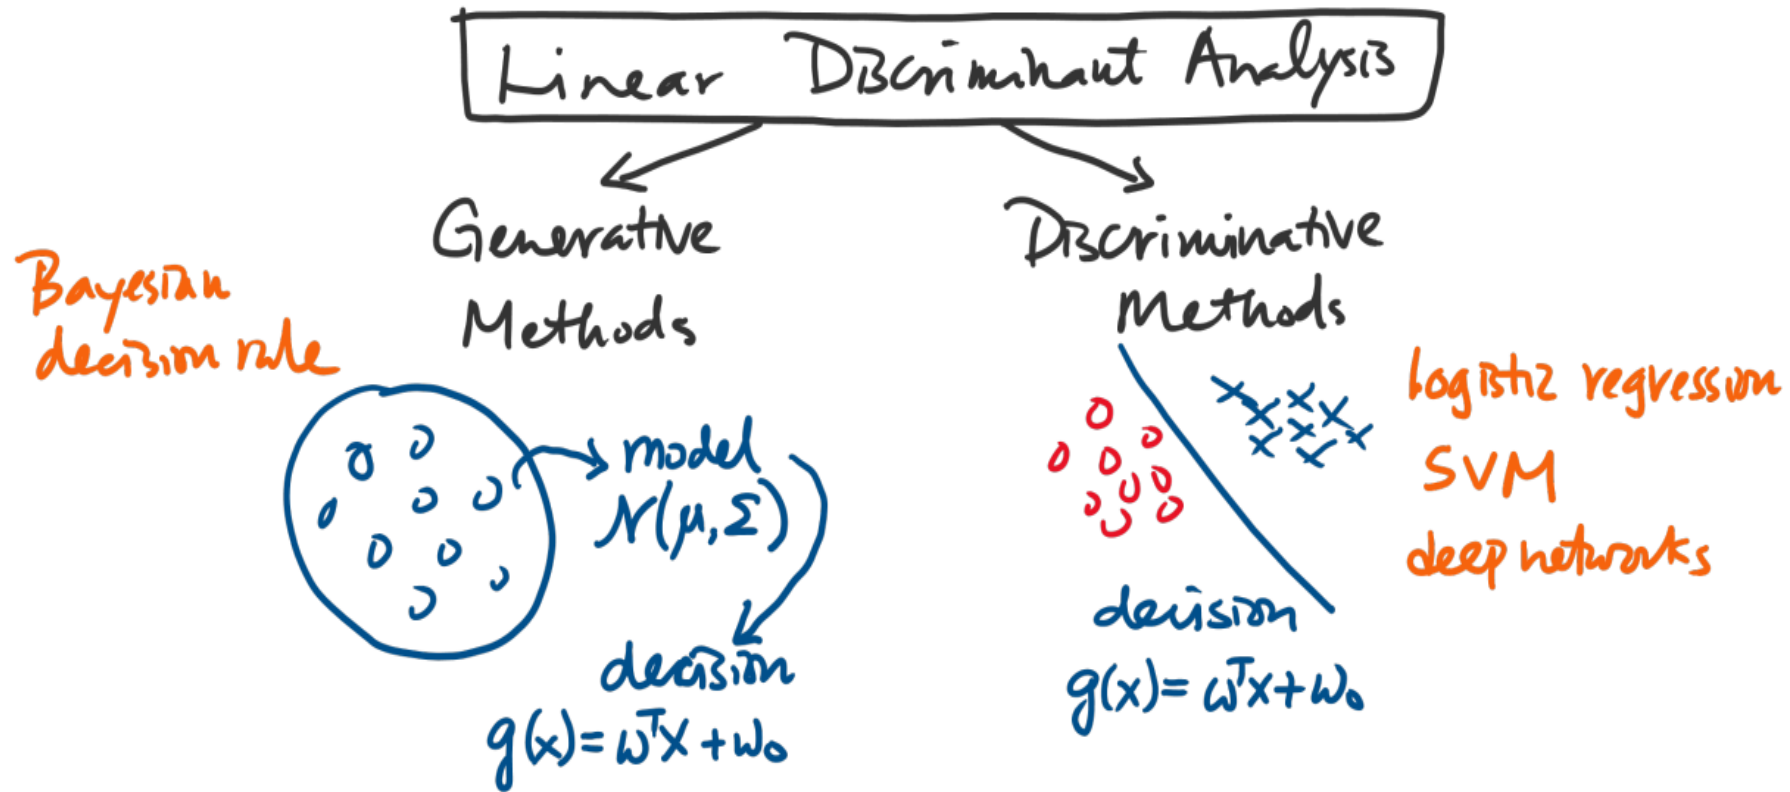 Linear Discriminant Analysis
Generative
Methods
Bayesian
decision rule
model
N(μ, Σ)
decision
g(x) = ωᵀx + ω₀
Discriminative
Methods
logistic regression
SVM
deep networks
decision
g(x) = ωᵀx + ω₀